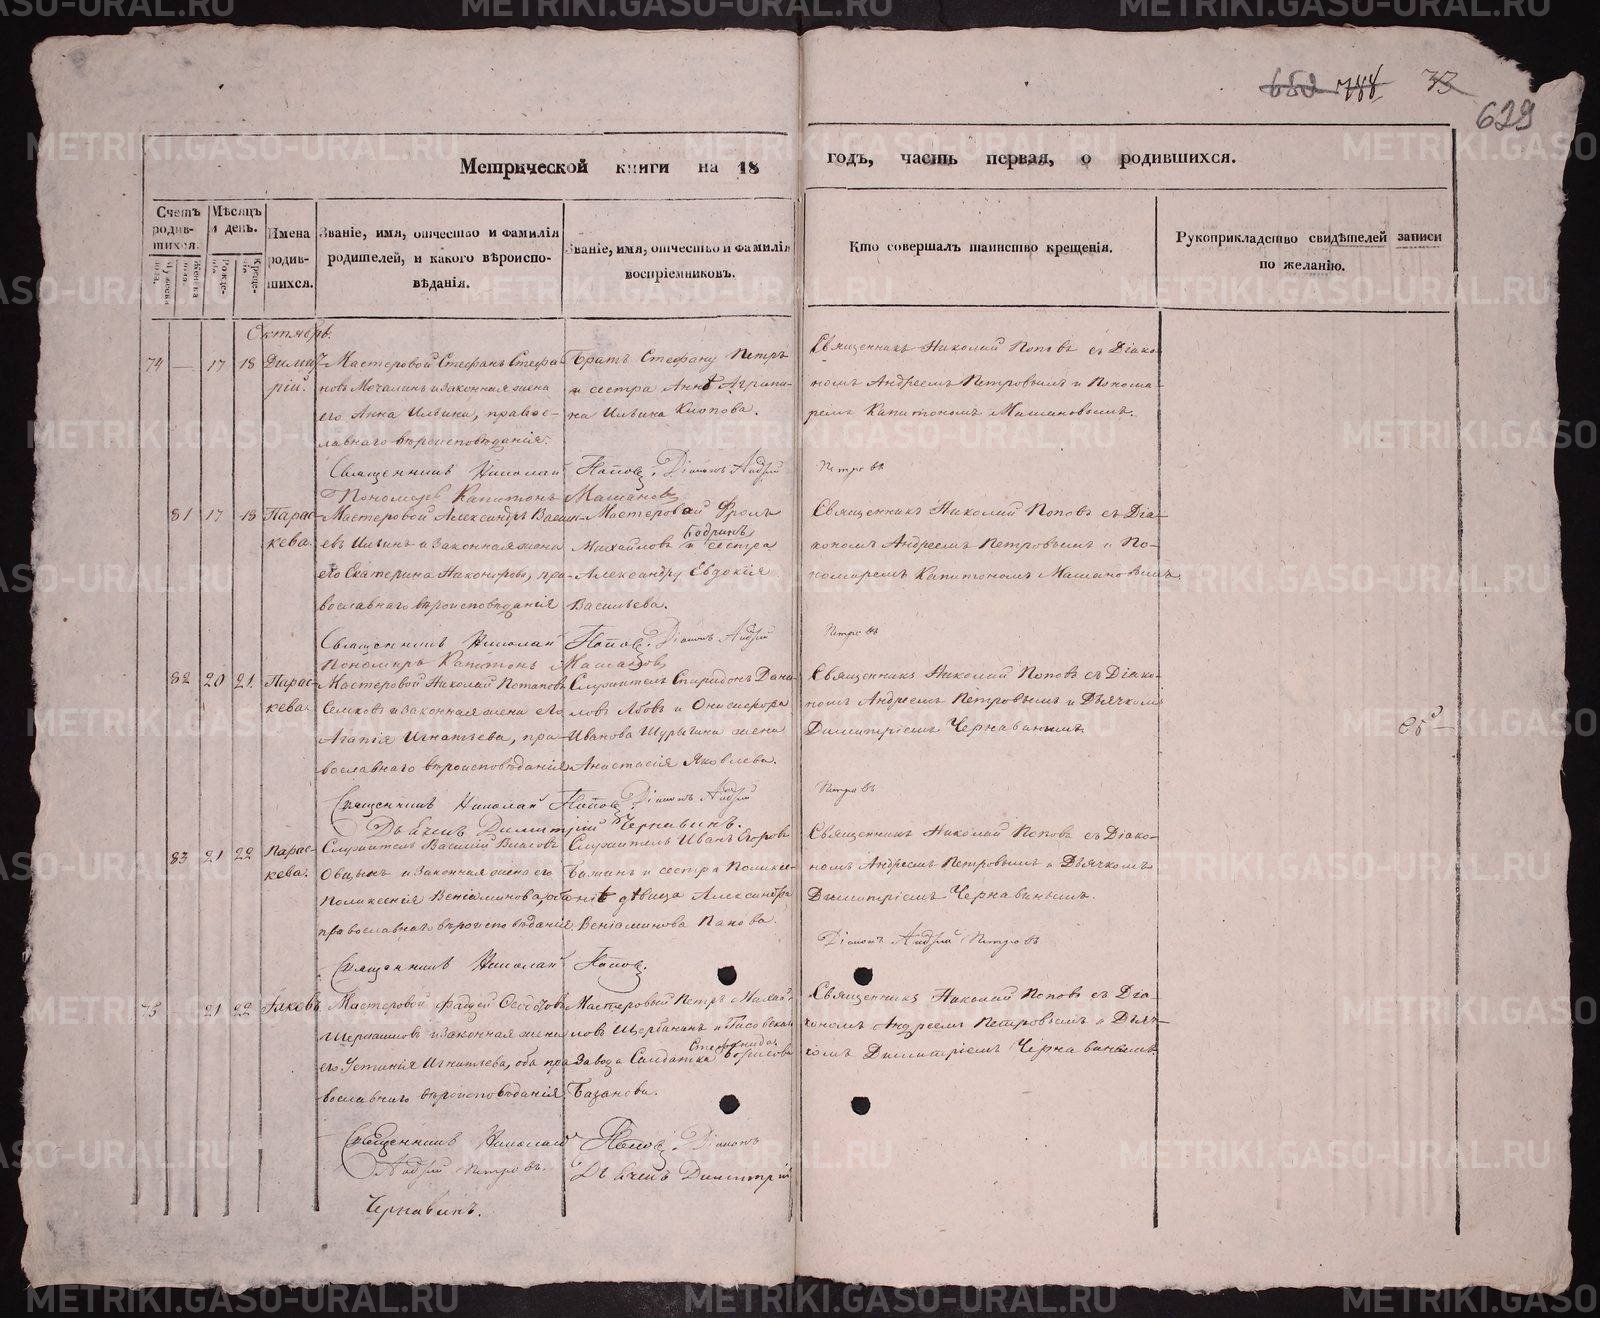 652 788 33
629
Метрической книги на 18 годъ, часть первая, о родившихся.
Счетъ родившихся.
Мужеска пола.
Женска пола.
Мѣсяцъ и день.
Рожденія
Крещенія
Имена родившихся.
Званіе, имя, отчество и фамилія родителей, и какого вѣроисповѣданія.
Званіе, имя, отчество и фамилія воспріемниковъ.
Кто совершалъ таинство крещенія.
Рукоприкладство свидѣтелей записи по желанію.
Октябрь.
74 — 17 18 Димитрій.
Мастеровой Стефанъ Стефановъ Мочалинъ и законная жена
его Анна Ильина, православнаго вѣроисповѣданія.
Братъ Стефану Петръ
и сестра Аннѣ Агрипина Ильина Клопова.
Священникъ Николай Поповъ съ Діакономъ Андреемъ Петровымъ и Пономаремъ Капитономъ Машановымъ.
Священникъ Николай Поповъ. Діаконъ Андрей Петровъ
Пономарь Капитонъ Машановъ
81 17 18 Параскева.
Мастеровой Александръ Васильевъ Ильинъ и законная жена
его Екатерина Никонорова, православнаго вѣроисповѣданія
Мастеровой Фролъ
Михайловъ Бодринъ и сестра
Александру Евдокія
Васильева.
Священникъ Николай Поповъ съ Діакономъ Андреемъ Петровымъ и Пономаремъ Капитономъ Машановымъ.
Священникъ Николай Поповъ. Діаконъ Андрей Петровъ
Пономарь Капитонъ Машановъ
82 20 21. Параскева.
Мастеровой Николай Потаповъ
и законная жена его
Агапія Игнатьева, православнаго вѣроисповѣданія
Служитель Спиридонъ Даниловъ и
Иванова Шурыгина жена
Анастасія Яковлева.
Священникъ Николай Поповъ съ Діакономъ Андреемъ Петровымъ и Дьячкомъ
Димитріемъ Чернавинымъ.
Священникъ Николай Поповъ. Діаконъ Андрей Петровъ
Дьячекъ Димитрій Чернавинъ.
83 21 22 Параскева.
Служитель Василій Власовъ
и законная жена его
Поликсенія Веніаминова, оба
православнаго вѣроисповѣданія
Служитель Иванъ Егоровъ
Бажинъ и сестра Поликсеніѣ дѣвица Александра
Веніаминова Панова.
Священникъ Николай Поповъ съ Діакономъ Андреемъ Петровымъ и Дьячкомъ
Димитріемъ Чернавинымъ.
Священникъ Николай Поповъ. Діаконъ Андрей Петровъ
75 21 22 Іаковъ.
Мастеровой Фадей
и законная жена
его Устинія Игнатьева, оба православнаго вѣроисповѣданія
Мастеровый Петръ
Щербанинъ и
завода Солдатка Степанида Борисова
Базанова.
Священникъ Николай Поповъ съ Діакономъ Андреемъ Петровымъ и Дьячкомъ Димитріемъ Чернавинымъ.
Священникъ Николай Поповъ. Діаконъ
Андрей Петровъ. Дьячекъ Димитрій
Чернавинъ.
METRIKI.GASO-URAL.RU